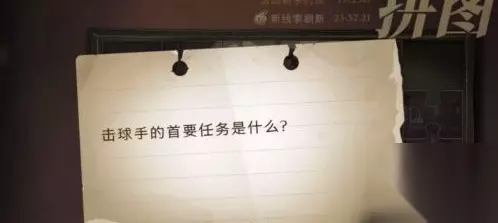 新线索刷新 23:57:21
拼图
击球手的首要任务是什么?